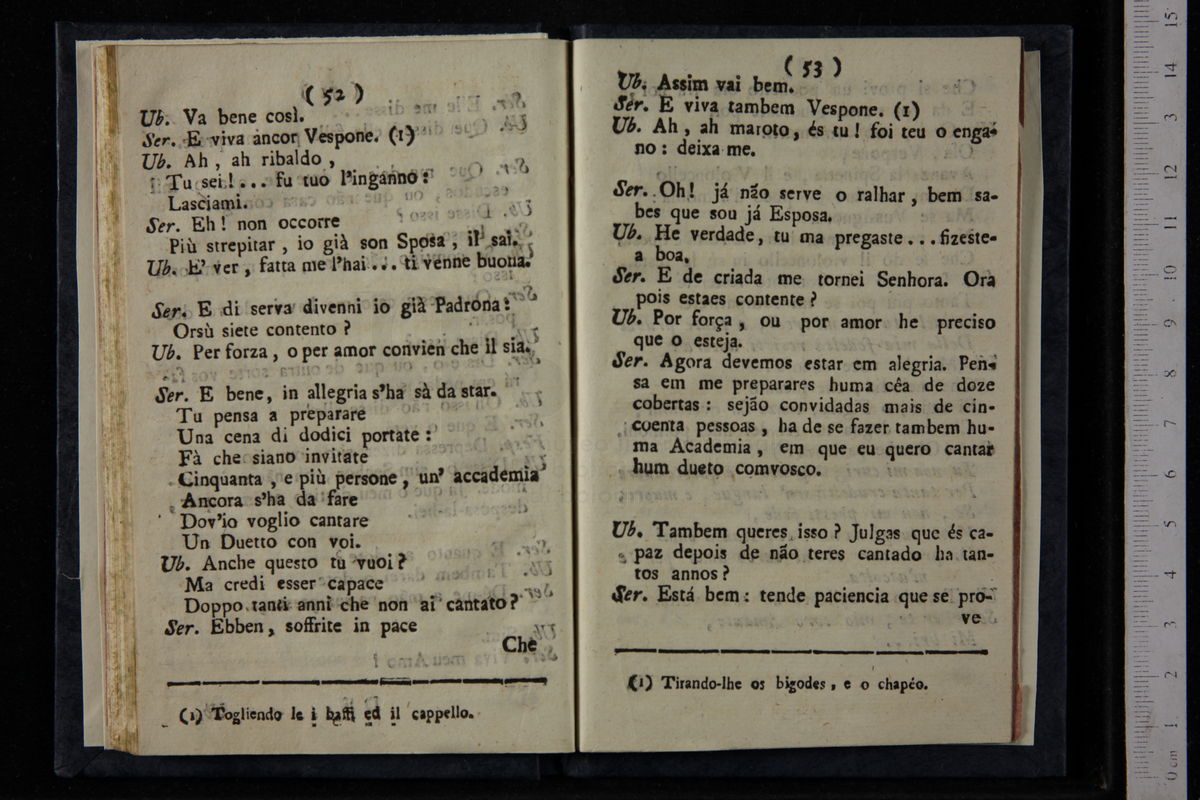 ( 52 )
Ub. Va bene così.
Ser. E viva ancor Vespone. (1)
Ub. Ah , ah ribaldo ,
Tu sei ! ... fu tuo l'inganno :
Lasciami.
Ser. Eh ! non occorre
Più strepitar , io già son Sposa , il sai.
Ub. E' ver , fatta me l'hai ... ti venne buona.
Ser. E di serva divenni io già Padrona :
Orsù siete contento ?
Ub. Per forza , o per amor convien che il sia.
Ser. E bene, in allegria s'ha sà da star.
Tu pensa a preparare
Una cena di dodici portate :
Fà che siano invitate
Cinquanta , e più persone, un' accademia
Ancora s'ha da fare
Dov'io voglio cantare
Un Duetto con voi.
Ub. Anche questo tu vuoi ?
Ma credi esser capace
Doppo tanti anni che non ai cantato ?
Ser. Ebben, soffrite in pace
Che
(1) Togliendo le i baffi ed il cappello.
( 53 )
Ub. Assim vai bem.
Ser. E viva tambem Vespone. (1)
Ub. Ah , ah maroto, és tu ! foi teu o enga-
no : deixa me.
Ser. Oh! já não serve o ralhar , bem sa-
bes que sou já Esposa.
Ub. He verdade, tu ma pregaste ... fizeste-
a boa.
Ser. E de criada me tornei Senhora. Ora
pois estaes contente ?
Ub. Por força , ou por amor he preciso
que o esteja.
Ser. Agora devemos estar em alegria. Pen-
sa em me preparares huma cêa de doze
cobertas : sejão convidadas mais de cin-
coenta pessoas , ha de se fazer tambem hu-
ma Academia , em que eu quero cantar
hum dueto comvosco.
Ub. Tambem queres isso ? Julgas que és ca-
paz depois de não teres cantado ha tan-
tos annos ?
Ser. Está bem : tende paciencia que se pro-
ve
(1) Tirando-lhe os bigodes , e o chapéo.
0 cm 1 2 3 4 5 6 7 8 9 10 11 12 13 14 15